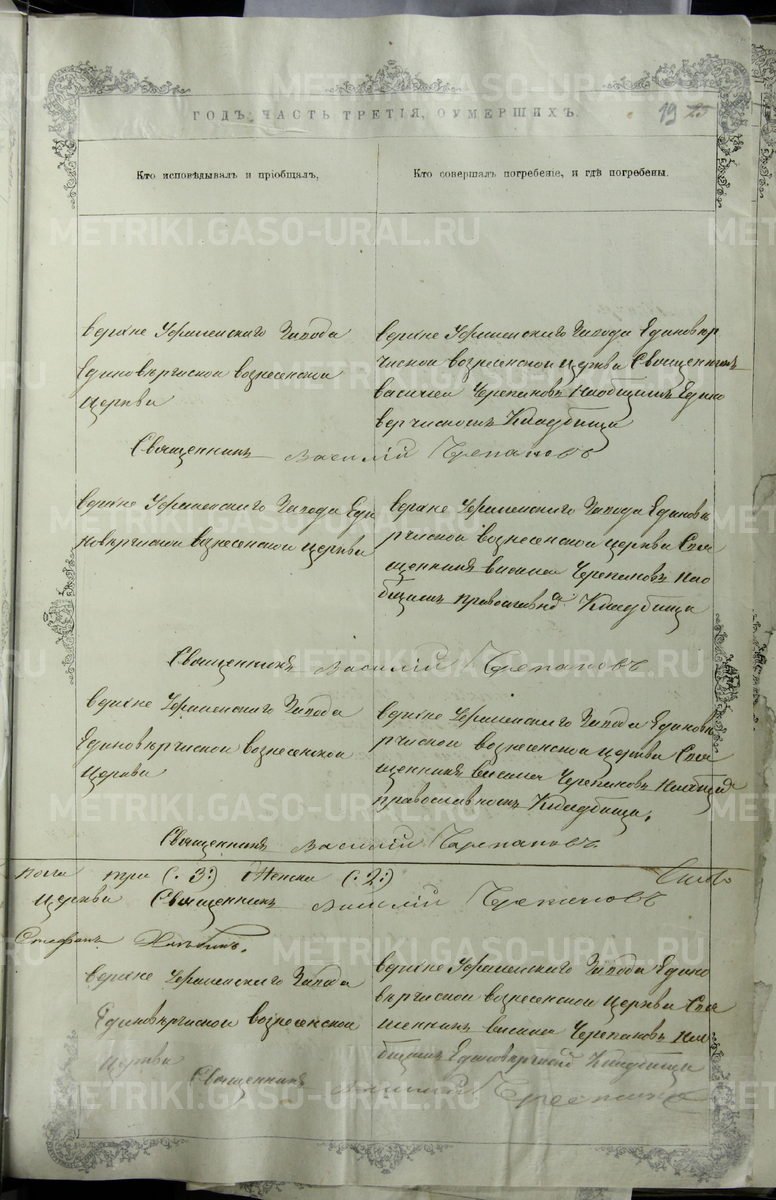 ГОДЪ, ЧАСТЬ ТРЕТІЯ, О УМЕРШИХЪ.
19 25
Кто исповѣдывалъ и пріобщалъ,
Кто совершалъ погребеніе, и гдѣ погребены.
верхне Уфалейскаго Завода
Единовѣрчиской вознесенской
Церкви
верхне Уфалейскаго Завода Единовѣр
чиской вознесенской Церкви Священникъ
василей Черепановъ Наобщимъ Едино
верчискомъ Кладбищи
Священникъ Василій Черепановъ
верхне Уфалейскаго Завода Еди
новѣрчиской вознесенской церкви
верхне Уфалейскаго Завода Единовѣ
рчиской вознесенской церкви Свя
щенникъ василей Черепановъ Нао
бщимъ православнд Кладбища
Священникъ Василій Черепановъ
верхне Уфалейскаго Завода
Единовѣрчиской вознесенской
Церкви
верхне Уфалейскаго Завода Единовѣ
рчиской вознесенской церкви Свя
щенникъ василей Черепановъ Наобщи
православномъ Кладбищи,
Священникъ Василій Черепановъ
пола три (: 3:) Женска (: 2:)
Церкви Священникъ Василій Черепановъ
Стефанъ
верхне Уфалейскаго Завода
Единовѣрчиской вознесенской
Церкви
верхне Уфалейскаго Завода Едино
вѣрчиской вознесенской Церкви Свя
щенникъ василей Черепановъ Нао
бщимъ Единоверчиской Кладбищи
Священникъ Василій Черепановъ
METRIKI.GASO-URAL.RU